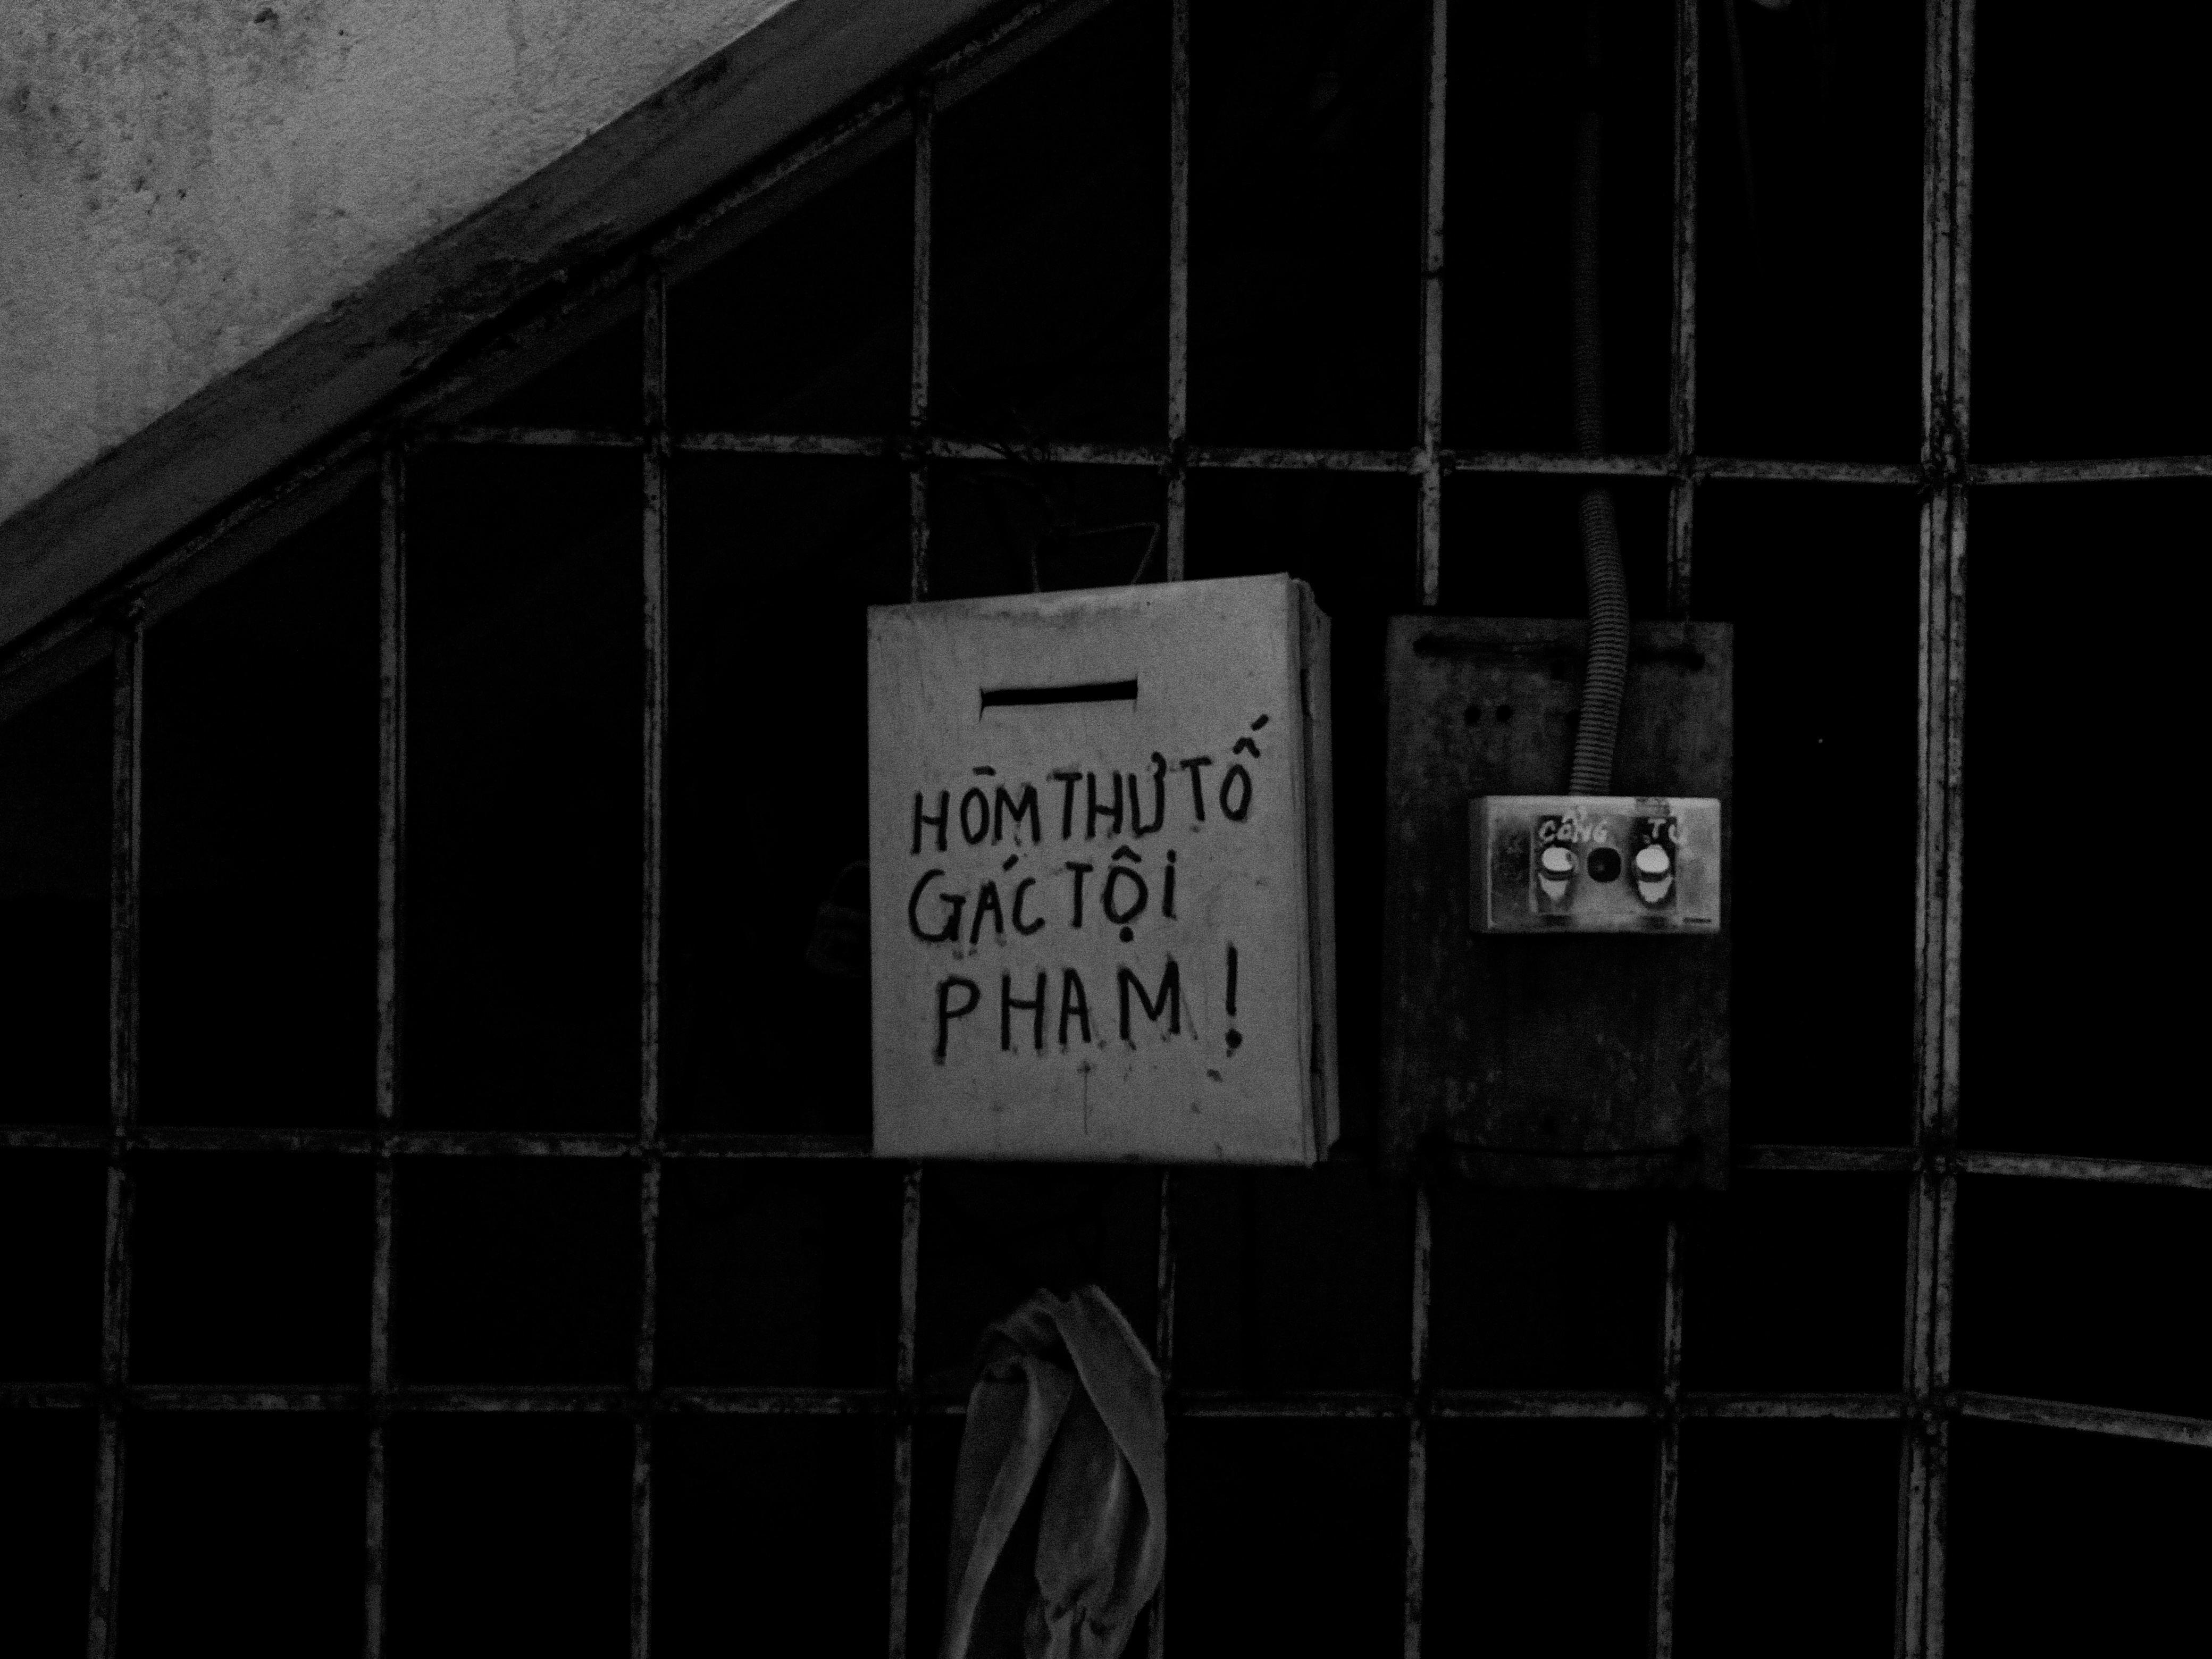 HÒM THƯ TỐ
GÁC TỘI
PHẠM !
CỔNG TỦ